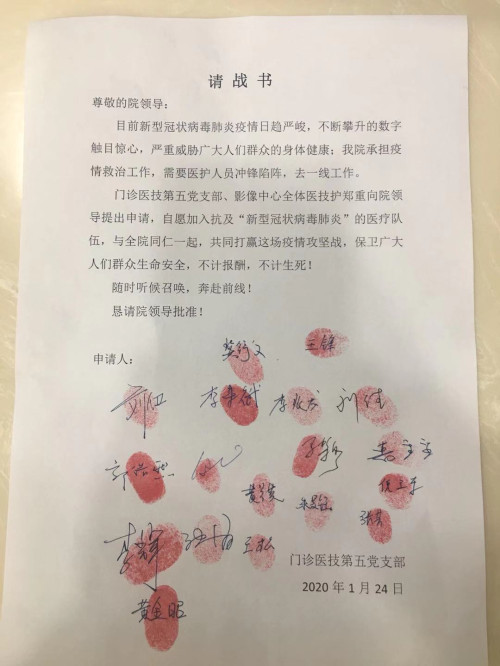 请战书
尊敬的院领导：
目前新型冠状病毒肺炎疫情日趋严峻，不断攀升的数字
触目惊心，严重威胁广大人们群众的身体健康；我院承担疫
情救治工作，需要医护人员冲锋陷阵，去一线工作。
门诊医技第五党支部、影像中心全体医技护郑重向院领
导提出申请，自愿加入抗及“新型冠状病毒肺炎”的医疗队
伍，与全院同仁一起，共同打赢这场疫情攻坚战，保卫广大
人们群众生命安全，不计报酬，不计生死！
随时听候召唤，奔赴前线！
恳请院领导批准！
申请人：
王锋
李辉
王松
门诊医技第五党支部
2020 年 1 月 24 日
黄金昭